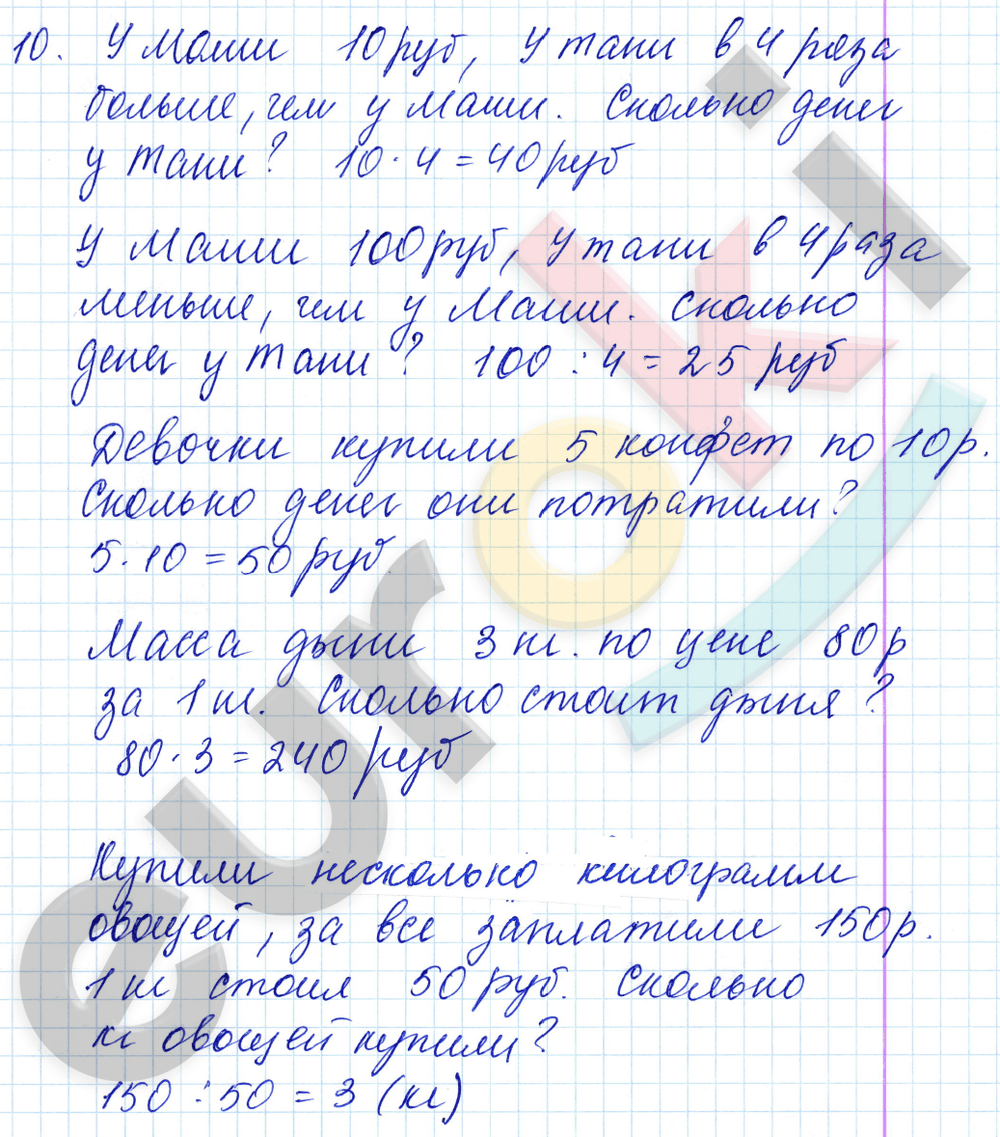 10. У Маши 10 руб, У тани в 4 раза
больше, чем у Маши. Сколько денег
у Тани? 10 · 4 = 40 руб
У Маши 100 руб, У тани в 4 раза
меньше, чем у Маши. Сколько
денег у Тани? 100 : 4 = 25 руб
Девочки купили 5 конфет по 10 р.
Сколько денег они потратили?
5 · 10 = 50 руб.
Масса дыни 3 кг. по цене 80 р
за 1 кг. Сколько стоит дыня?
80 · 3 = 240 руб
Купили несколько килограмм
овощей, за все заплатили 150 р.
1 кг стоил 50 руб. Сколько
кг овощей купили?
150 : 50 = 3 (кг)
euroki